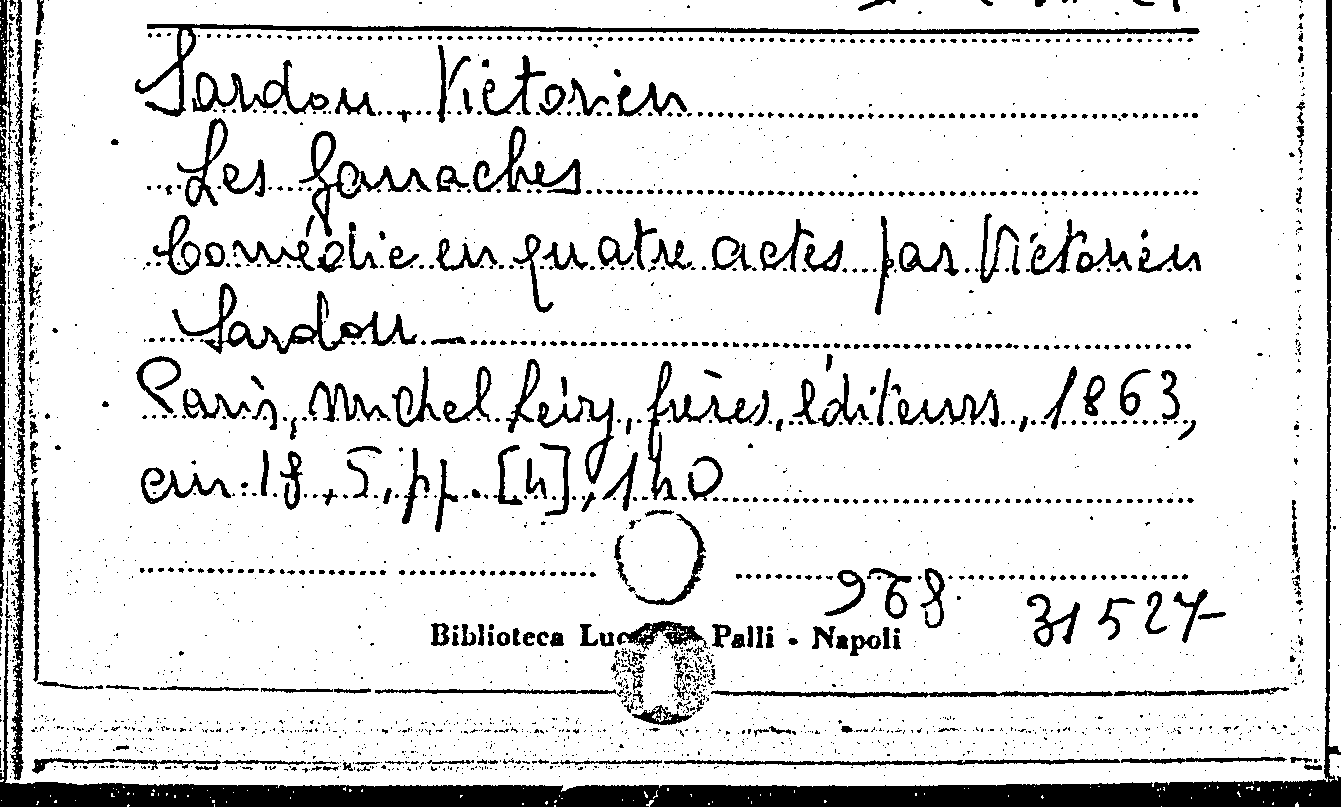 Sardou, Victorien
Les ganaches
Comédie en quatre actes par Victorien
Sardou _
Paris, Michel Lévy, frères, éditeurs, 1863,
cm. 18,5, pp. [4], 140
968 31527
Biblioteca Palli - Napoli